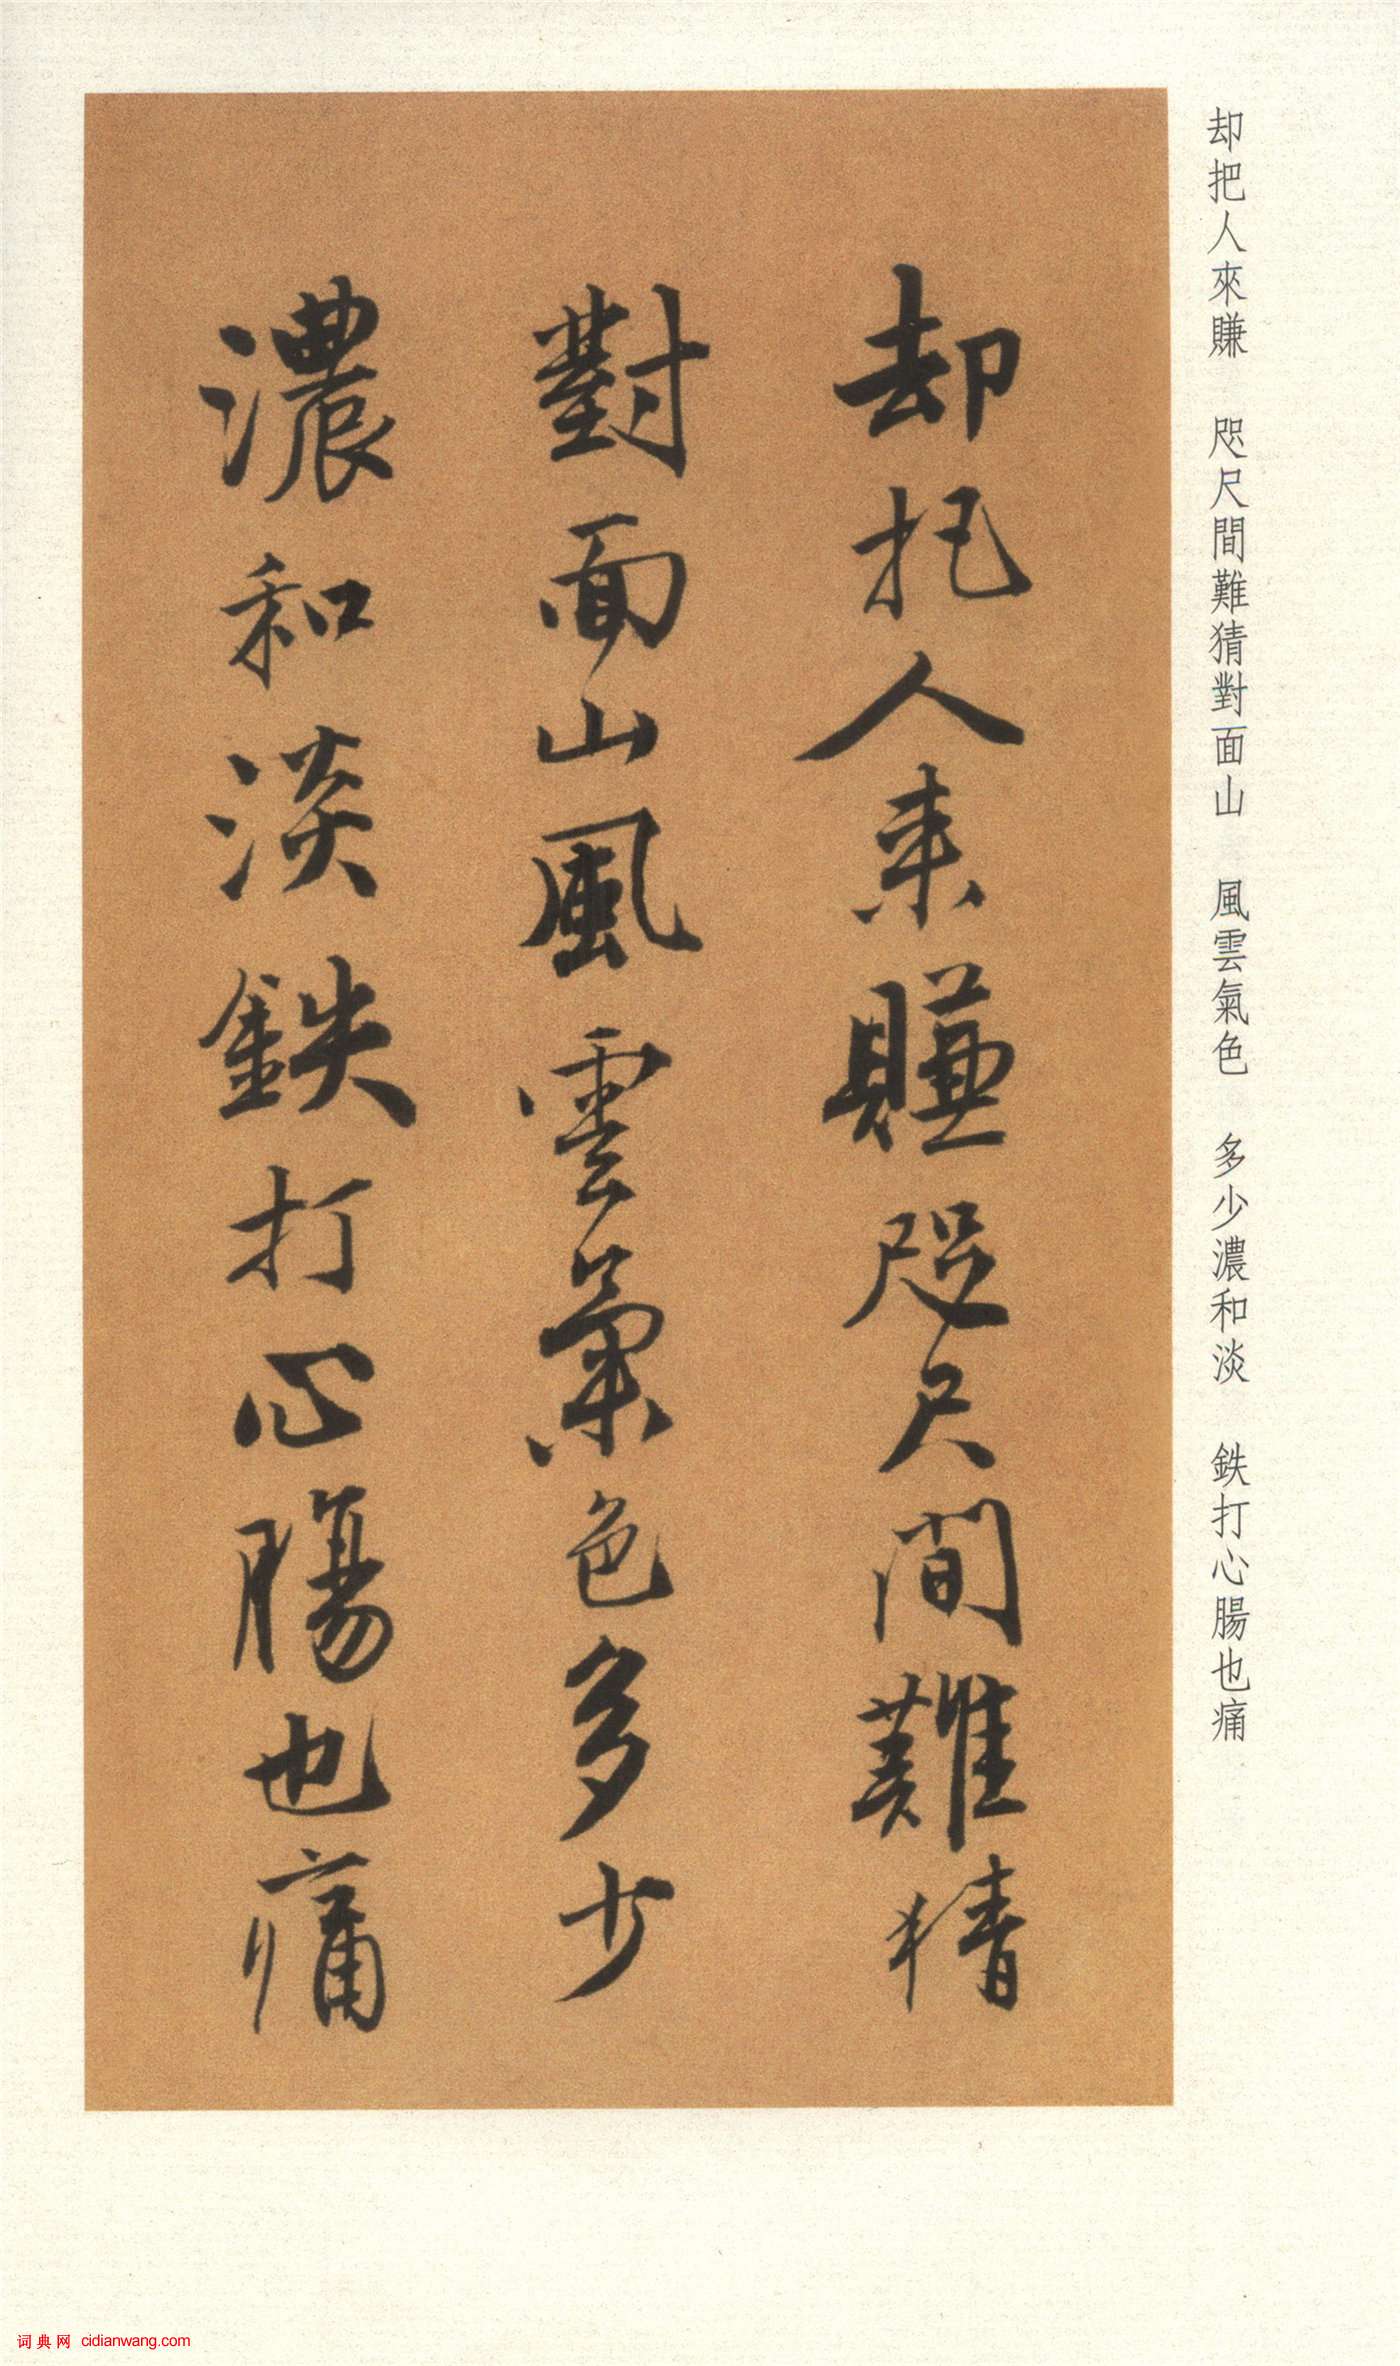 却把人來賺 咫尺間難猜對面山 風雲氣色 多少濃和淡 鉄打心腸也痛
却把人来賺咫尺間難猜
對面山風雲氣色多少
濃和淡鉄打心腸也痛
词典网 cidianwang.com